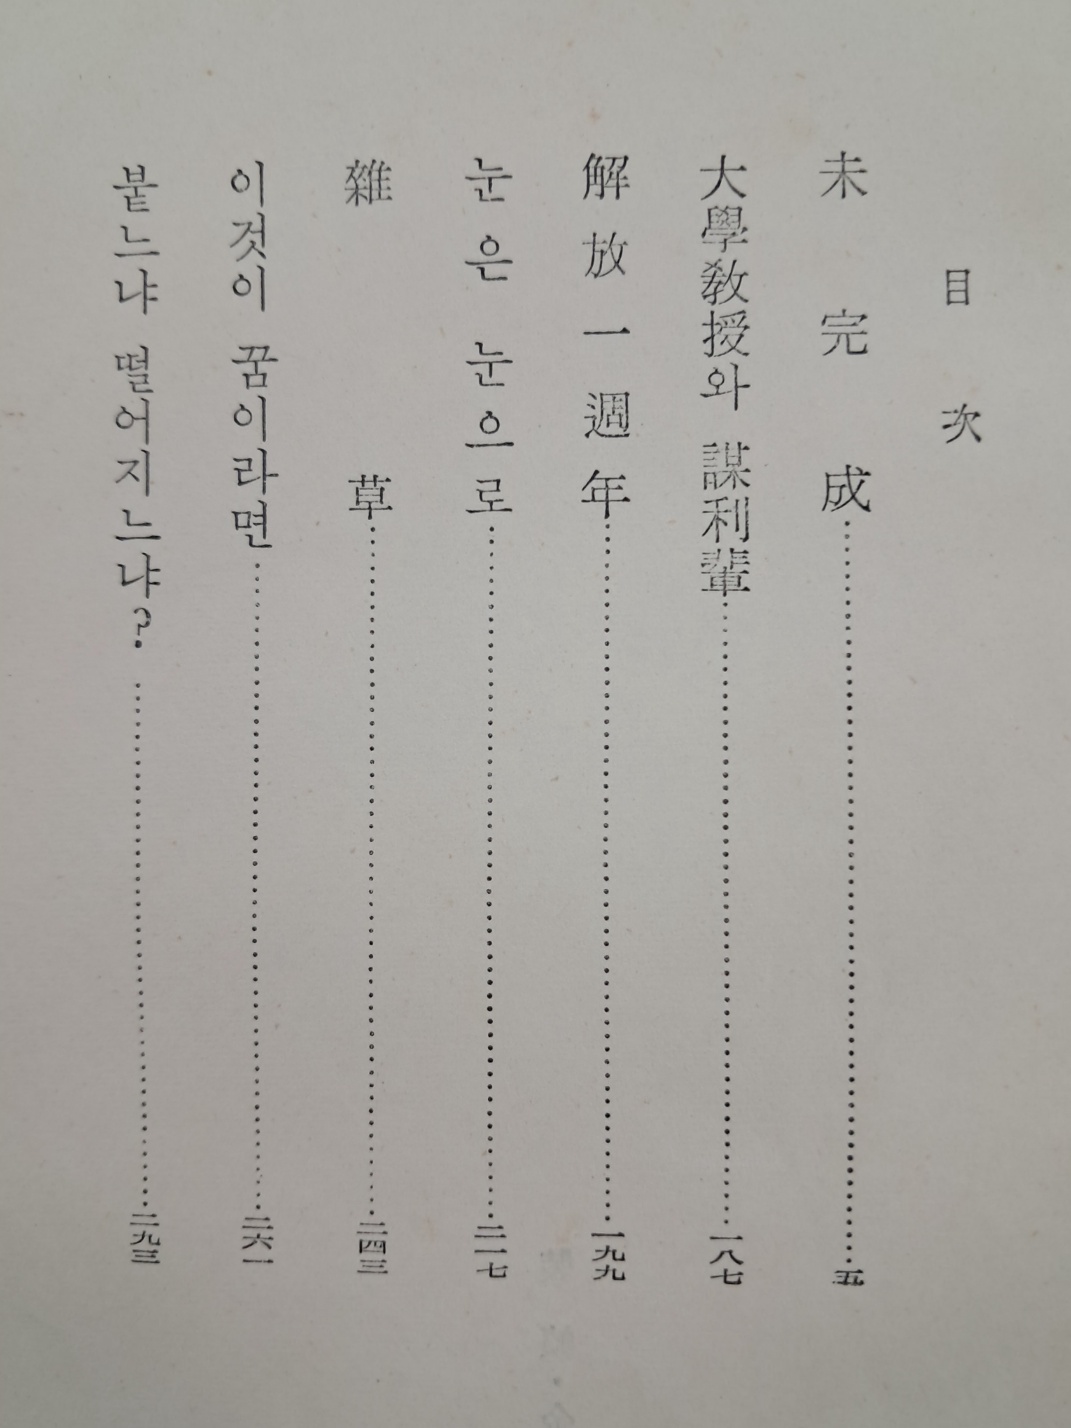 目次
未完成……五
大學教授와 謀利輩……一八七
解放一週年……一九九
눈은 눈으로……二一七
雜草……二四三
이것이 꿈이라면……二六一
붙느냐 떨어지느냐?……二九三